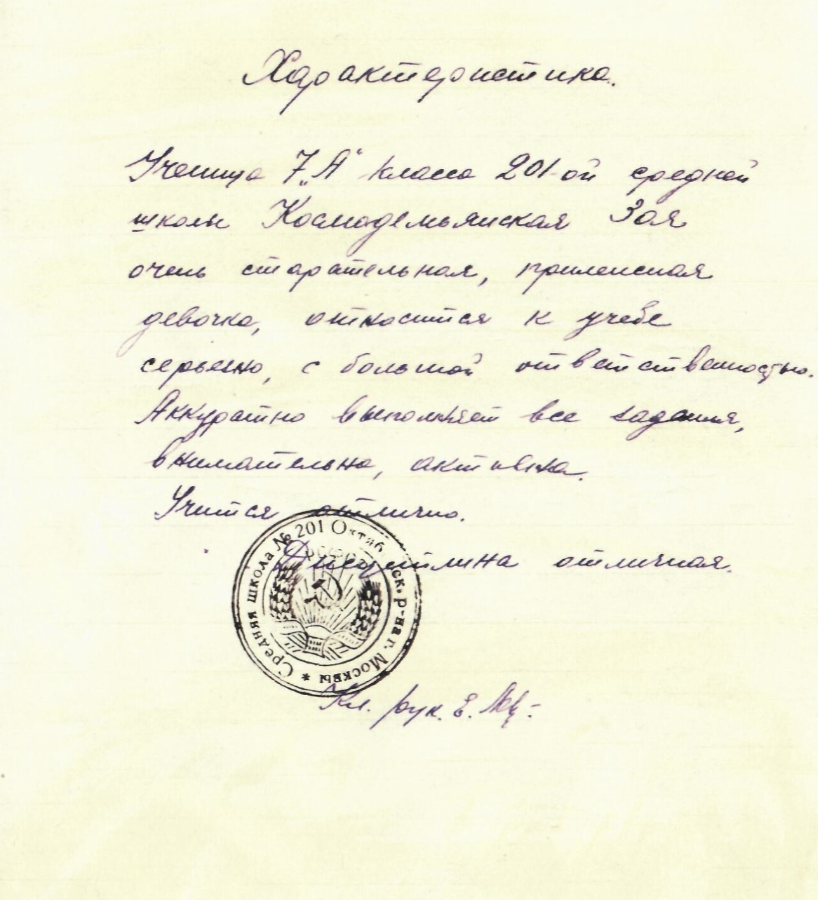 Характеристика.
Ученица 7 „А" класса 201-ой средней
школы Космодемьянская Зоя
очень старательная, прилежная
девочка, относится к учебе
серьезно, с большой ответственностью.
Аккуратно выполняет все задания,
внимательна, активна.
Учится отлично.
Дисциплина отличная.
Средняя школа № 201 Октябрьск. р-на г. Москвы *
РСФСР
Кл. рук. Е.